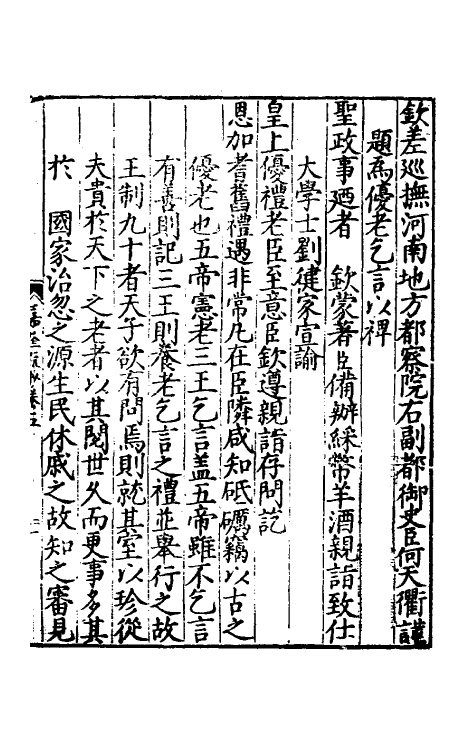 欽差巡撫河南地方都察院右副都御史臣何天衢謹
題為優老乞言以裨
聖政事廼者 欽蒙著臣備辦綵幣羊酒親詣致仕
大學士劉健家宣諭
皇上優禮老臣至意臣欽遵親詣存問訖
恩加耆舊禮遇非常凡在臣隣咸知砥礪竊以古之
優老也五帝憲老三王乞言盖五帝雖不乞言
有善則記三王則養老乞言之禮並舉行之故
王制九十者天子欲有問焉則就其室以珍從
夫貴於天下之老者以其閱世久而更事多其
於 國家治忽之源生民休戚之故知之審見
嘉 疏 卷五